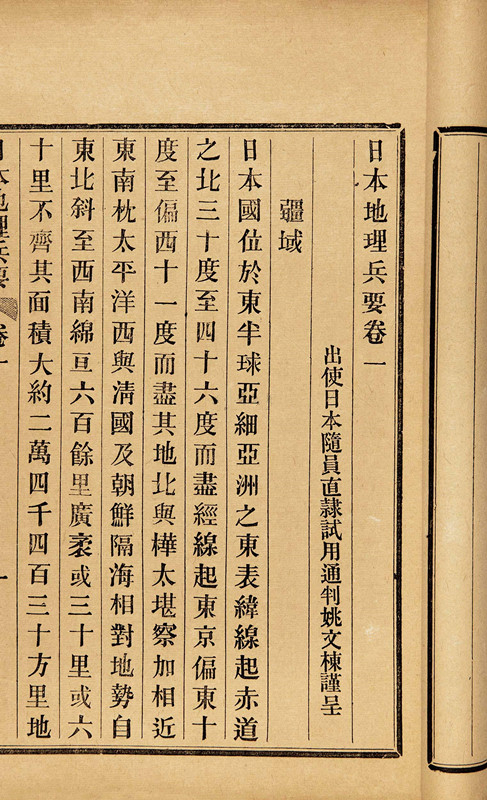 日本地理兵要卷一
出使日本隨員直隸試用通判姚文棟謹呈
疆域
日本國位於東半球亞細亞洲之東表緯線起赤道
之北三十度至四十六度而盡經線起東京偏東十
度至偏西十一度而盡其地北與樺太堪察加相近
東南枕太平洋西與清國及朝鮮隔海相對地勢自
東北斜至西南綿亘六百餘里廣袤或三十里或六
十里不齊其面積大約二萬四千四百三十方里地
日本地理兵要 卷一 一